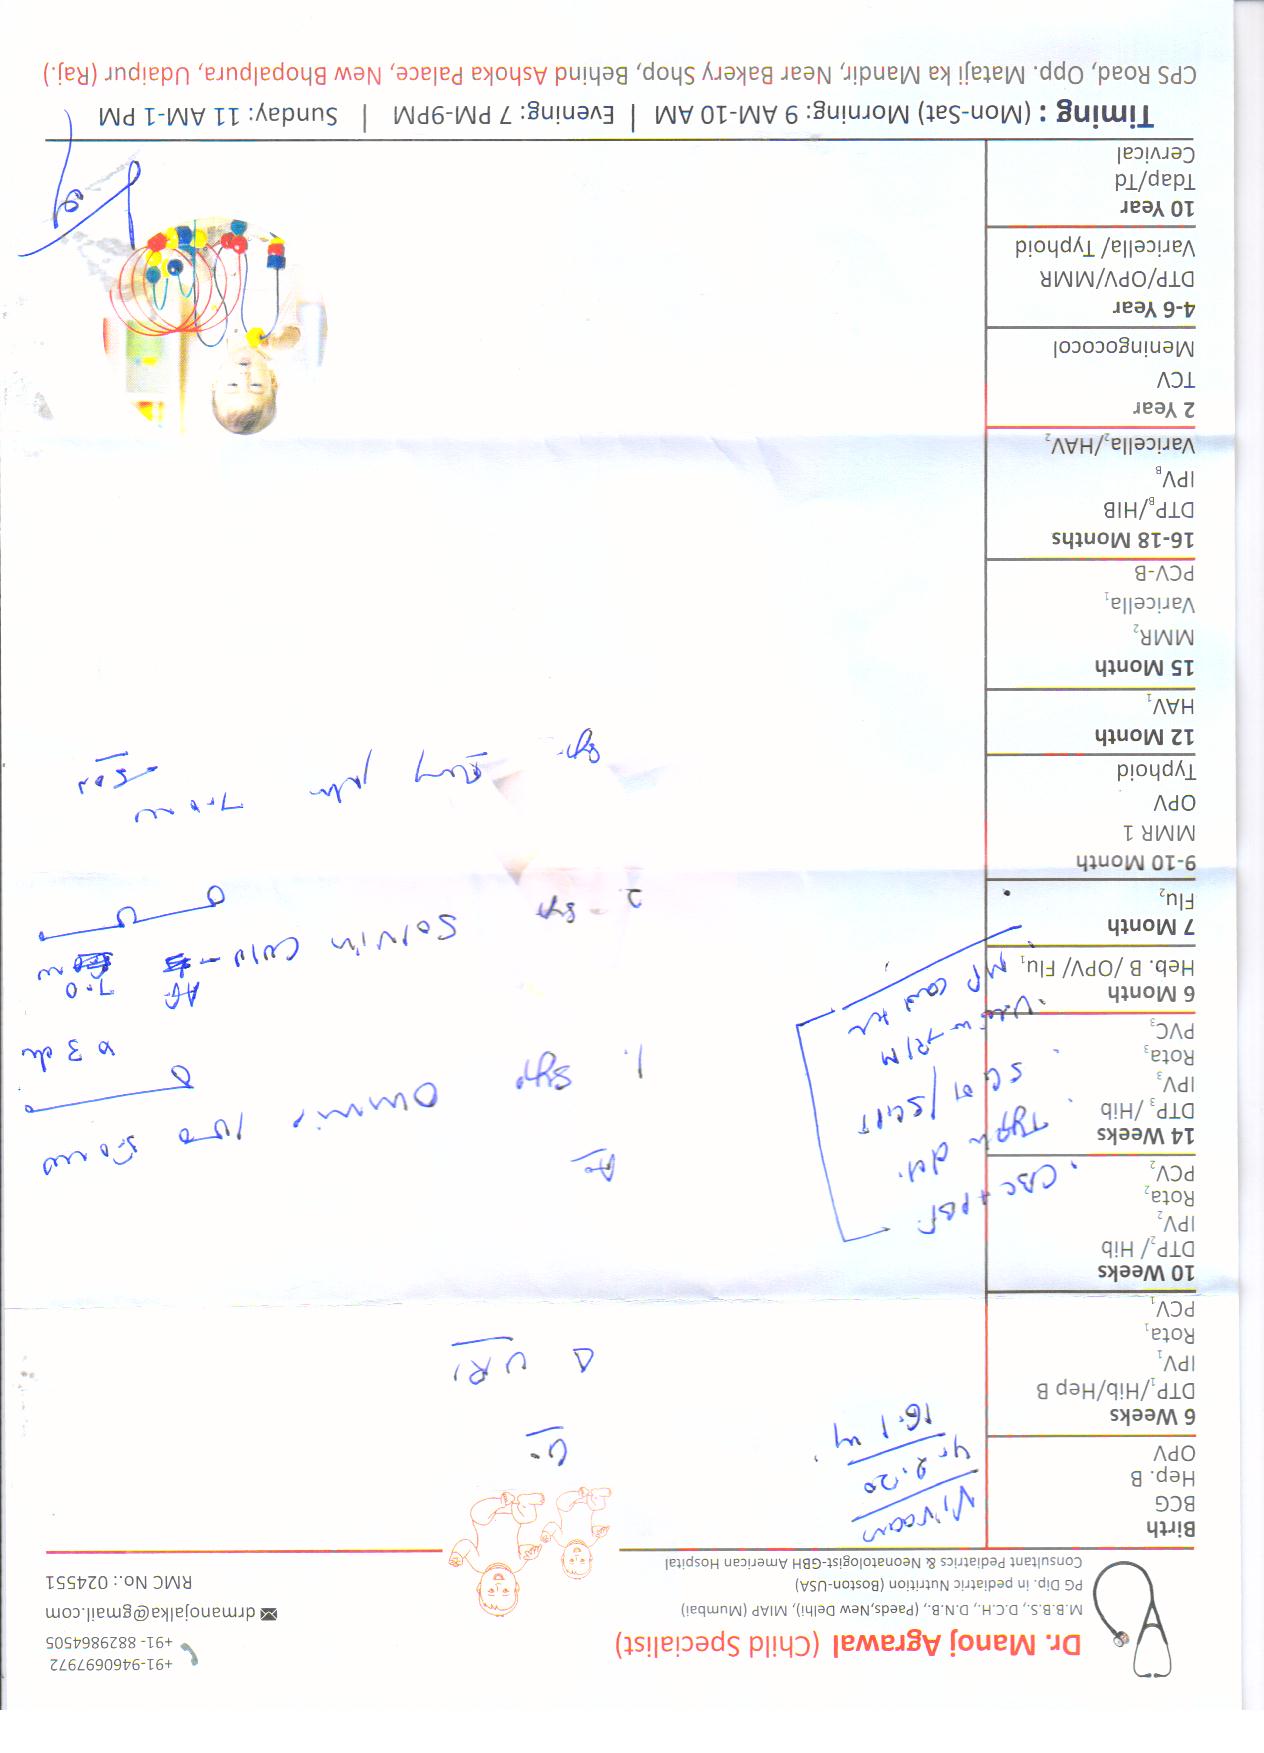 Dr. Manoj Agrawal (Child Specialist)
M.B.B.S., D.C.H., D.N.B., (Paeds,New Delhi), MIAP (Mumbai)
PG Dip. in pediatric Nutrition (Boston-USA)
Consultant Pediatrics & Neonatologist-GBH American Hospital
+91-9460697972
+91- 8829864505
drmanojalka@gmail.com
RMC No.: 024551
Birth
BCG
Hep. B
OPV
6 Weeks
DTP₁/Hib/Hep B
IPV₁
Rota₁
PCV₁
10 Weeks
DTP₂/ Hib
IPV₂
Rota₂
PCV₂
14 Weeks
DTP₃ /Hib
IPV₃
Rota₃
PVC₃
6 Month
Heb. B /OPV/ Flu₁
7 Month
Flu₂
9-10 Month
MMR 1
OPV
Typhoid
12 Month
HAV₁
15 Month
MMR₂
Varicella₁
PCV-B
16-18 Months
DTPB/HIB
IPVB
Varicella₂/HAV₂
2 Year
TCV
Meningococol
4-6 Year
DTP/OPV/MMR
Varicella/ Typhoid
10 Year
Tdap/Td
Cervical
Vivaan
16.1 kg
Δ URI
CBC + PBF
SGOT/SGPT
Urine → R/M
1. Syp.
3 da
2 - Syp Solvin Cold - AF 7.0
Syp.
Timing : (Mon-Sat) Morning: 9 AM-10 AM | Evening: 7 PM-9PM | Sunday: 11 AM-1 PM
CPS Road, Opp. Mataji ka Mandir, Near Bakery Shop, Behind Ashoka Palace, New Bhopalpura, Udaipur (Raj.)